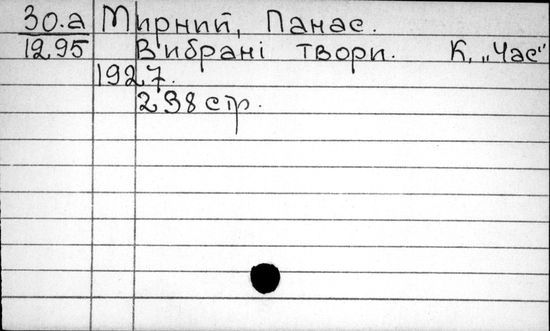 30.а Мирний, Панас.
1295 Вибрані твори. К, „Час"
1927.
238 стр.